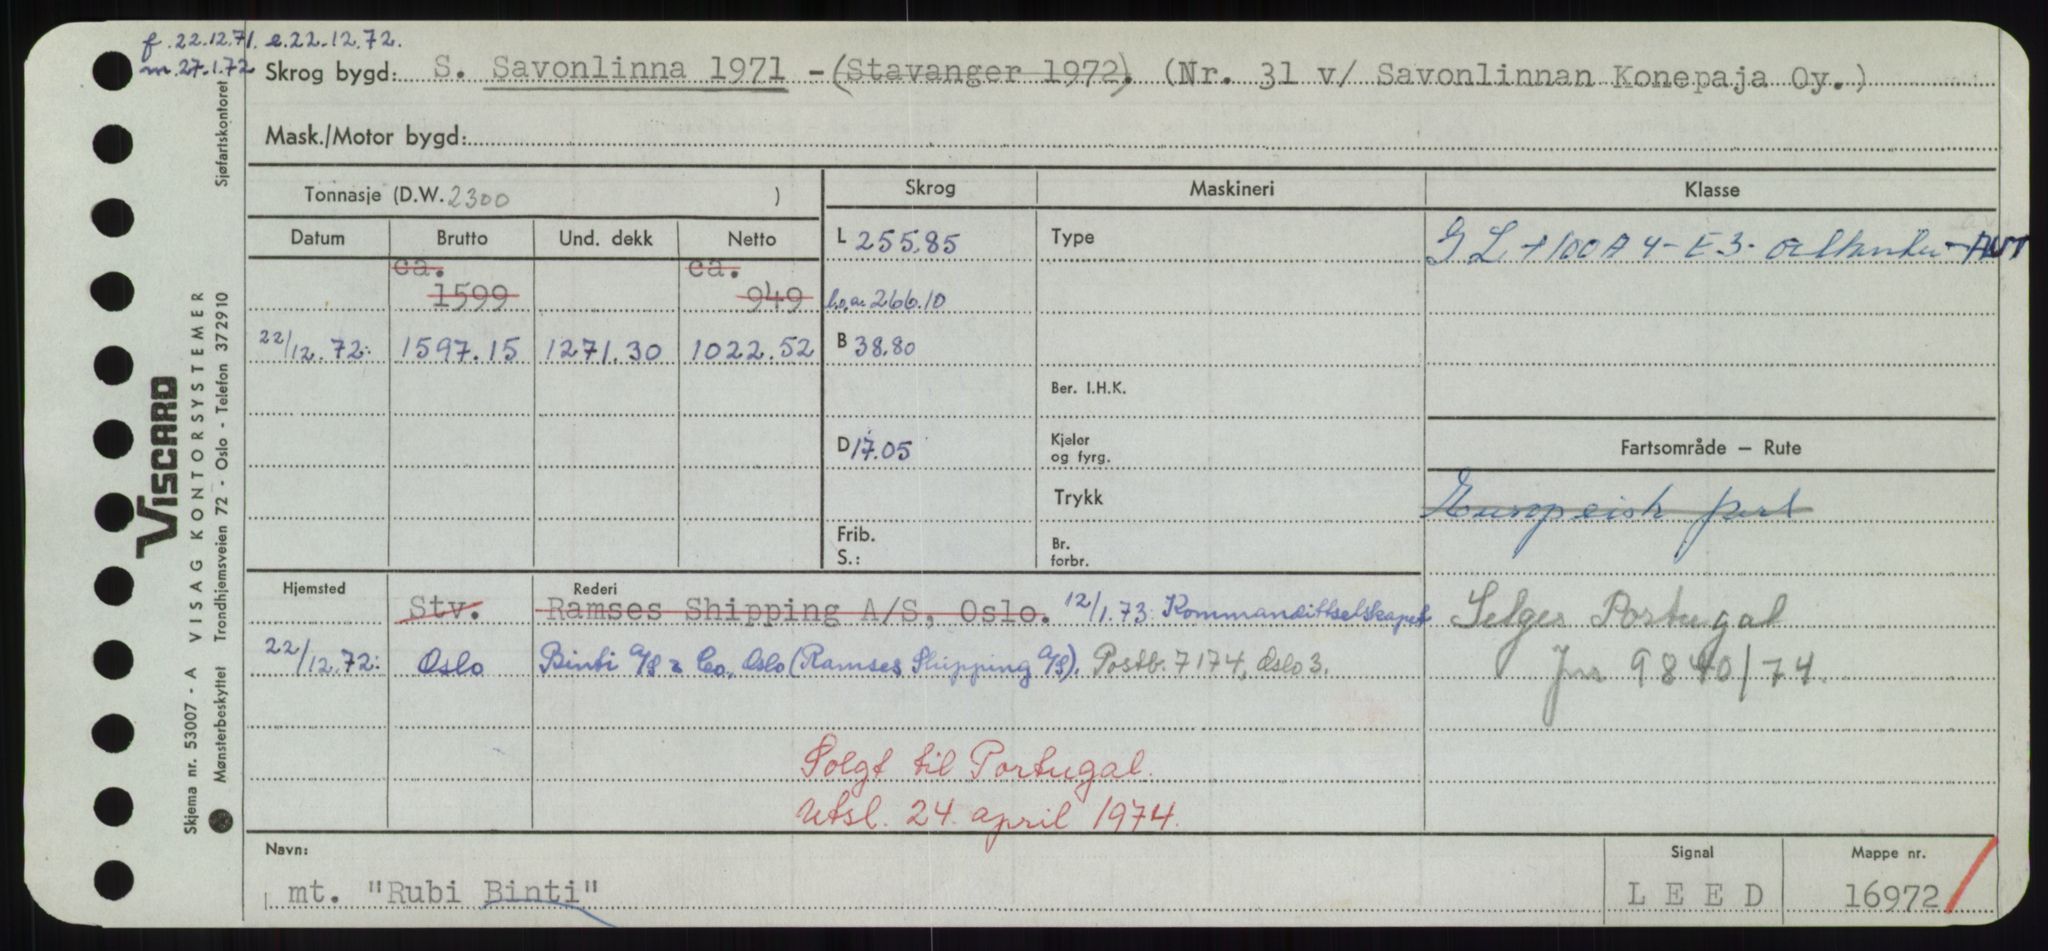 f. 22.12.71. e.22.12.72.
m.27.1.72
Skrog bygd: S. Savonlinna 1971 -(Stavanger 1972). (Nr. 31 v/ Savonlinnan Konepaja Oy.)
Mask./Motor bygd:
Tonnasje (D.W. 2300 )
Skrog Maskineri Klasse
Datum Brutto Und. dekk Netto
L 255.85 Type GL + 100 A 4 - E 3 -
ca. 1599 ca. 949
l.o.a. 266.10
22/12.72: 1597.15 1271.30 1022.52
B 38.80
Ber. I.H.K.
D 17.05
Kjeler og fyrg.
Fartsområde — Rute
Trykk
Europeisk fart
Frib.
S.:
Br. forbr.
Hjemsted Rederi
Stv. Ramses Shipping A/S, Oslo. 12/1.73: Kommandittselskapet
22/12.72: Oslo Binti A/S & Co., Oslo (Ramses Shipping A/S). Postb. 7174, Oslo 3.
Selges Portugal
Jnr 9840/74.
Solgt til Portugal.
Utsl. 24. april 1974.
Navn: mt. "Rubi Binti"
Signal LEED
Mappe nr. 16972
Viscard
VISAG KONTORSYSTEMER
Skjema nr. 53007 - A
Mønsterbeskyttet Trondhjemsveien 72 - Oslo - Telefon 372910
Sjøfartskontoret